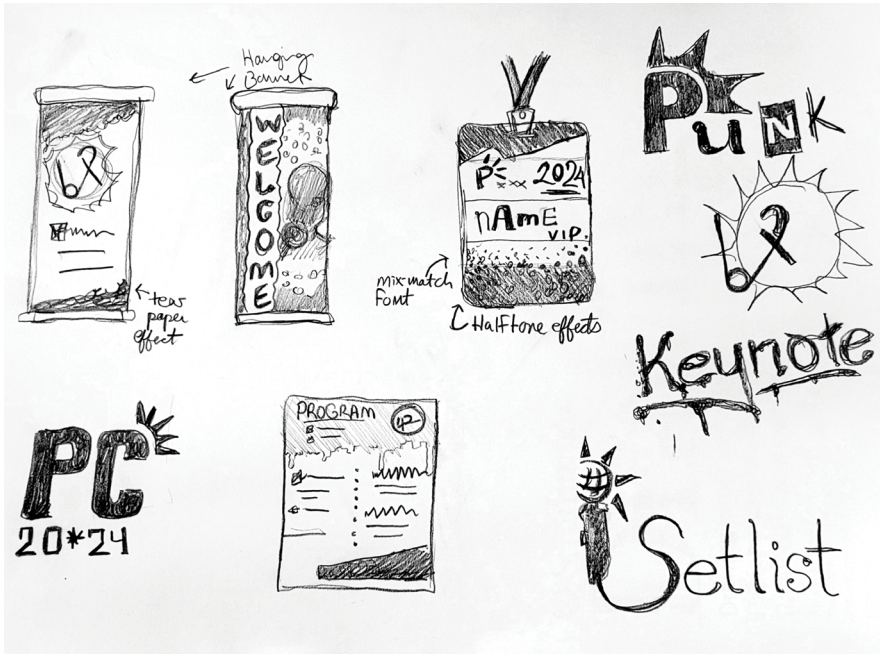 Hanging
Banner
WELCOME
tear
paper
effect
P 2024
nAmE
VIP.
mix match
Font
Halftone effects
Punk
Keynote
PC
20*24
PROGRAM
Setlist